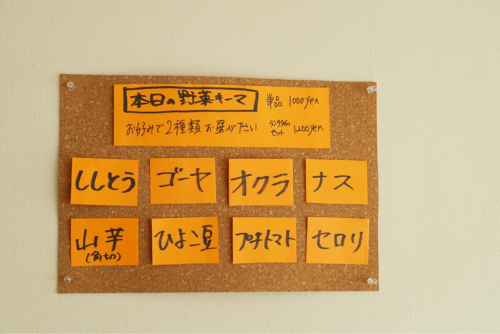 本日の野菜キーマ
単品 1000yen
お好みで2種類お選び下さい
ランチタイム
セット 1200yen
ししとう ゴーヤ オクラ ナス
山芋 ひよこ豆 プチトマト セロリ
(角切)